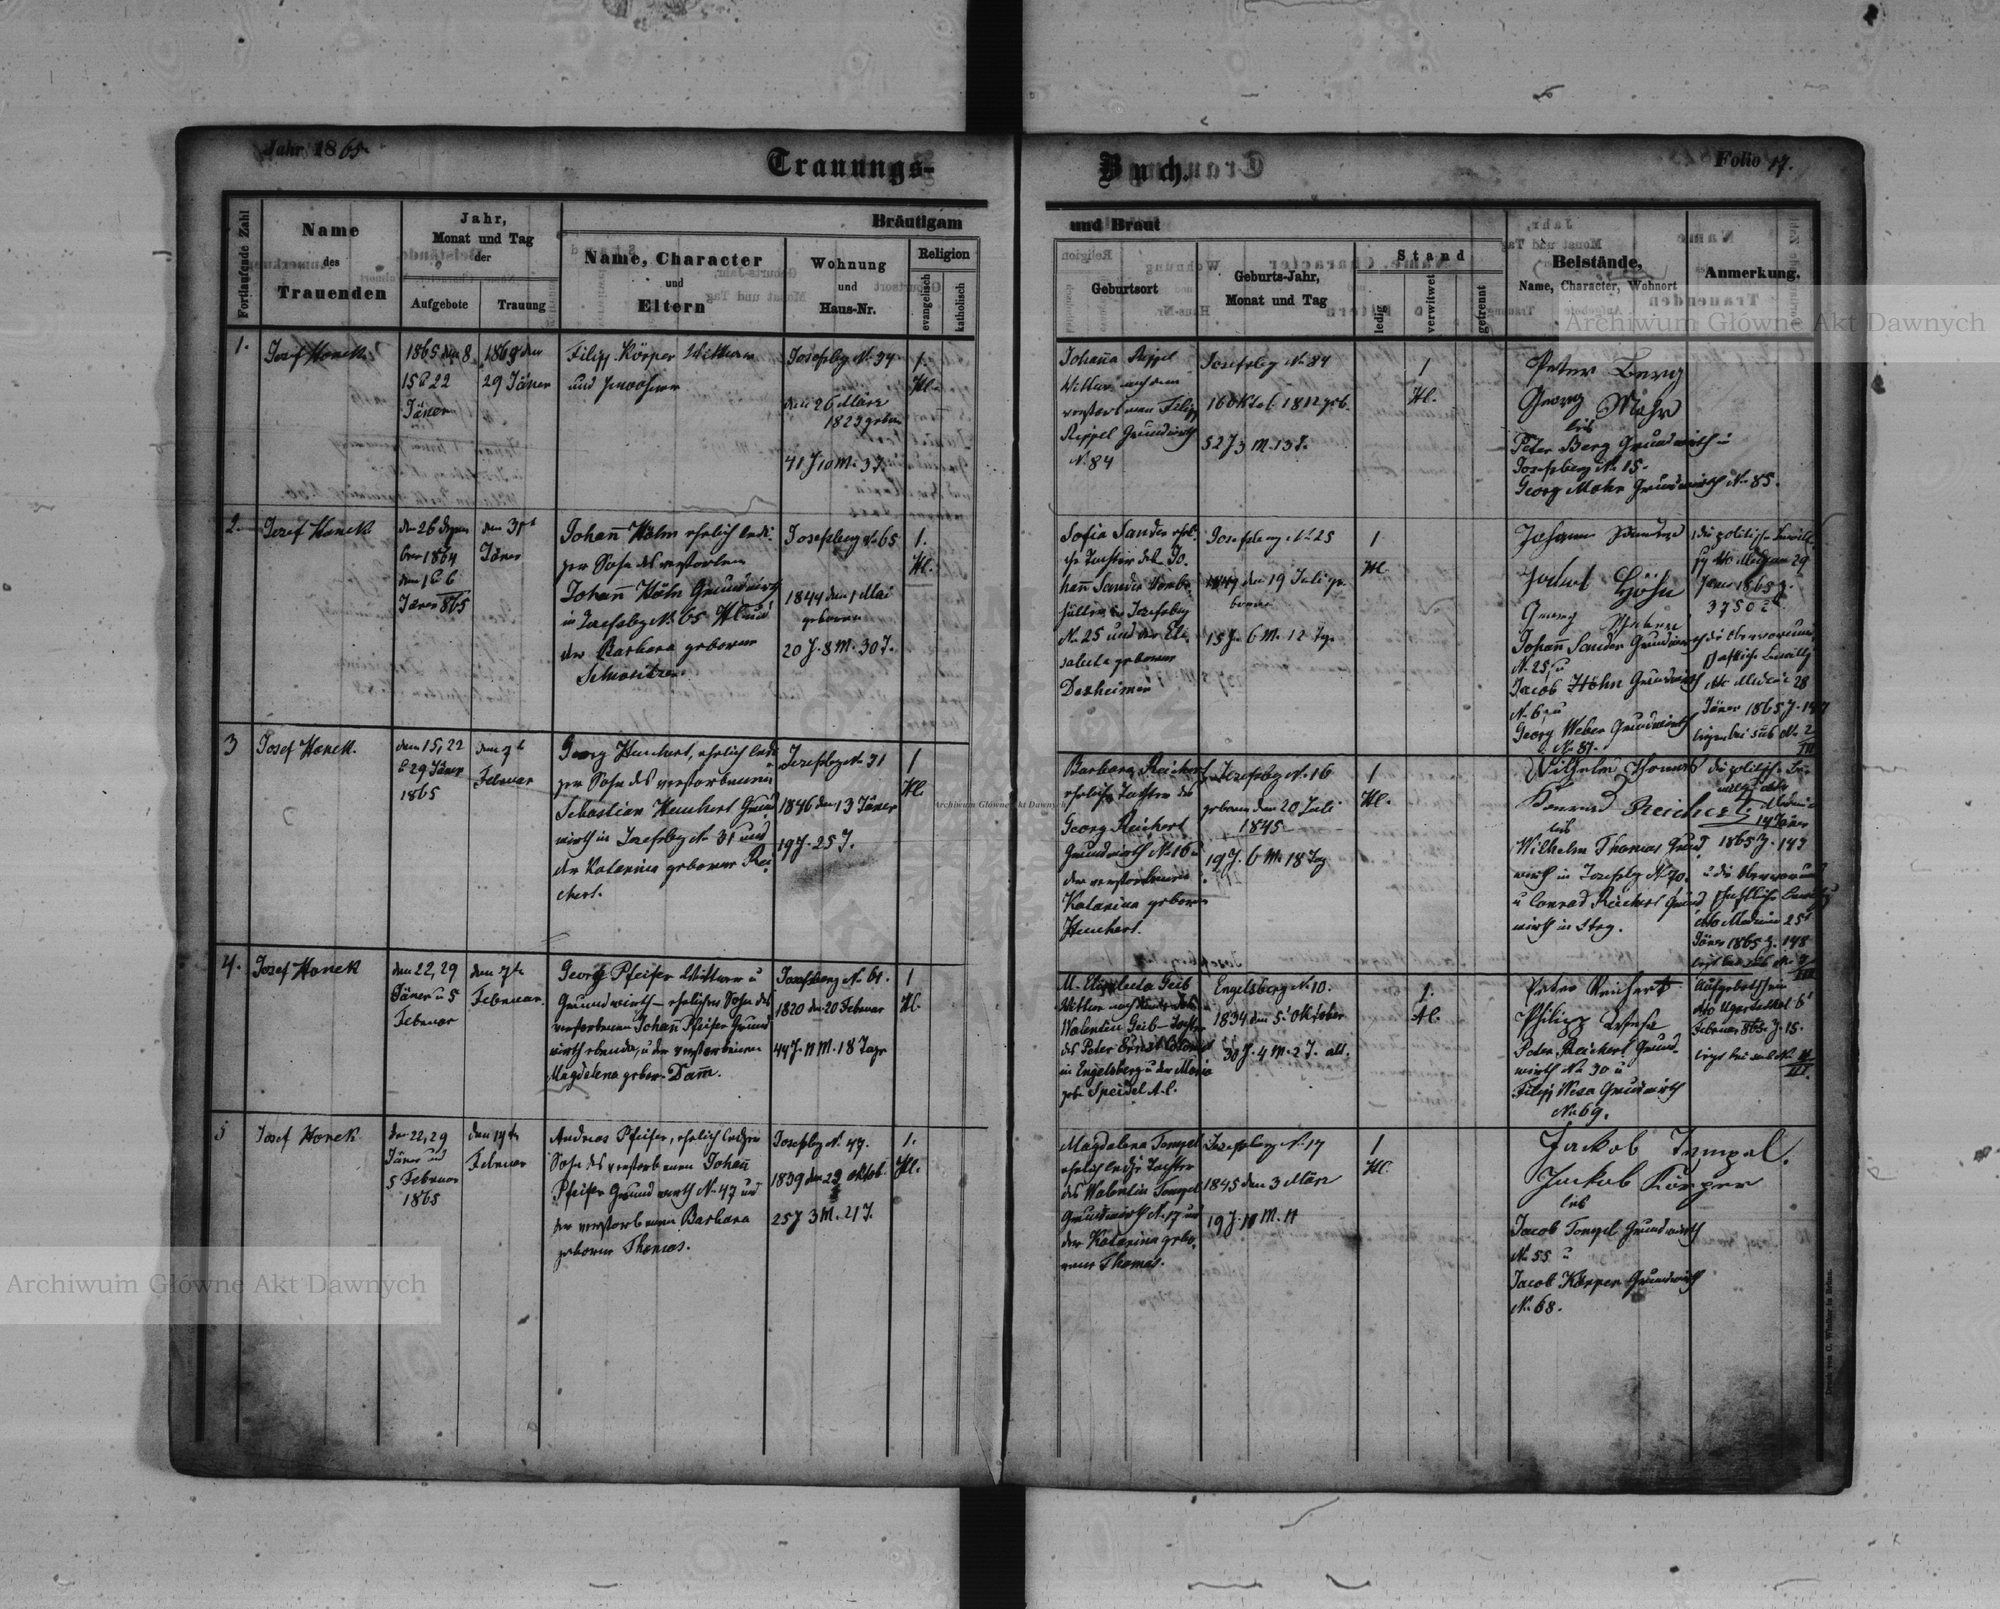 Jahr 1865.
Trauungs-
Buch.
Folio 17.
Fortlaufende Zahl
Name
des
Trauenden
Jahr,
Monat und Tag
der
Aufgebote
Trauung
Bräutigam
Name, Character
und
Eltern
Wohnung
und
Haus-Nr.
Religion
evangelisch
katholisch
und Braut
Geburtsort
Geburts-Jahr,
Monat und Tag
Stand
ledig
verwitwet
getrennt
Beistände,
Name, Character, Wohnort
Anmerkung.
1.
Josef Honek
1865 den 8
15 & 22
Jäner
1865 den
29 Jäner
Filipp Körper Wittwer
und Inwohner
Josefsbg No. 34
den 26 März
1823 geboren
41 J 10 M. 3 T.
1.
Hl.
Johanna Reppel
Wittwe nach dem
verstorbenen Filipp
Reppel Grundwirth
No 84
Josefsbg No 84
16 Oktob 1812 geb.
52 J 3 M. 13 T.
1
Hl.
Peter Berg
Georg Mohr
Peter Berg Grundwirth in
Josefsberg No 15.
Georg Mohr Grundwirth No 85.
2.
Josef Honek
den 26 Dezem
ber 1864
den 1 & 6
Jäner 865
den 31t
Jäner
Johann Höhn ehelich ledi-
ger Sohn des verstorbenen
Johann Höhn Grundwirth
in Josefsbg No 65 Hl und
der Barbara geborene
Josefsberg No 65
1844 den 1 Mai
geboren
20 J. 8 M. 30 T.
1.
Hl.
Sofia Sander eheli-
che Tochter des Jo-
hann Sander
in Josefsbg
No. 25 und der Eli-
geborene
Dexheimer
Josefsberg No 25
den 19 Juli ge-
boren
15 J. 6 M. 12 Tg.
1
Hl
Johann Sander
Jakob Höhn
Georg Weber
Johann Sander Grundwirth
No. 25, u
Jacob Höhn Grundwirth
No. 6, u
Georg Weber Grundwirth
No. 81.
die politische Bewill-
dto Medenice 29
Jäner 1865 Z.
3750
dto Medenic 28
Jäner 1865 Z. 147
3
Josef Honek.
den 15, 22
& 29 Jäner
1865
den 7t
Februar
Georg Heuchert, ehelich ledi-
ger Sohn des verstorbenen
Sebastian Heuchert Grund-
wirth in Josefsbg No 31 und
der Katarina geborene Rei-
chert.
Josefsbg No 31
1846 den 13 Jäner
19 J. 25 T.
1
Hl.
Barbara Reichert
eheliche Tochter des
Georg Reichert
Grundwirth No 16 u
der verstorbenen
Katarina geborene
Heuchert.
Josefsbg No. 16
geboren den 20 Juli
1845
19 J. 6 M. 18 Tag
1
Hl.
Wilhelm Thomas
Konrad Reichert
Wilhelm Thomas Grund-
wirth in Josefsbg No 70.
u Conrad Reichert Grund
wirth in dtg.
die politische Be-
14 Jäner
1865 Z. 147
dto Medenice 25t
Jäner 1865 Z. 148
4.
Josef Honek
den 22, 29
Jäner u 5
Februar
den 7te
Februar.
Georg Pfeifer Wittwer u
Grundwirth ehelicher Sohn des
verstorbenen Johann Pfeifer Grund
wirth ebenda, u der verstorbenen
Magdalena gebor. Damm.
Josefsberg No. 61.
1820 den 20 Februar
44 J. 11 M. 18 Tage
1
Hl.
M. Elisabeta Geib
Valentin Geib Tochter
des Peter Ernst
in Engelsberg u der Maria
geb. Speidel A.C.
Engelsberg No 10.
1834 den 5. Oktober
30 J. 4 M. 2 T. alt.
1.
Hl.
Peter Reichert
Philipp
Peter Reichert Grund-
wirth No 30 u
Filipp Wesa Grundwirth
No 69.
Aufgebothschein
dto Ugartsthal 6t
Februar 865 Z. 15.
5
Josef Honek
den 22, 29
Jäner und
5 Februar
1865
den 14te
Februar
Andreas Pfeifer, ehelich lediger
Sohn des verstorbenen Johann
Pfeifer Grundwirth No 47 und
der verstorbenen Barbara
geborene Thomas.
Josefsbg No. 47.
1839 den 23 Oktob.
25 J 3 M. 21 T.
1.
Hl.
Magdalena Tempel
ehelich ledige Tochter
des Valentin Tempel
Grundwirth No. 17 und
der Katarina gebo-
rene Thomas.
Josefsberg No. 17
1845 den 3 März
19 J. 11 M. 11
1
Hl.
Jackob Tempel.
Jackob Körper
Jacob Tempel Grundwirth
No 55 u
Jacob Körper Grundwirth
No. 68.
Druck von C. Winiker in Brünn.
Archiwum Główne Akt Dawnych
Archiwum Główne Akt Dawnych
Archiwum Główne Akt Dawnych